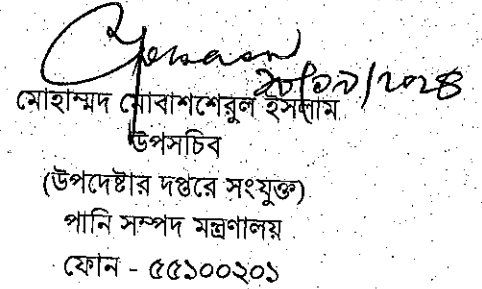 ২০/০৯/২০২৪
মোহাম্মদ মোবাশশেরুল ইসলাম
উপসচিব
(উপদেষ্টার দপ্তরে সংযুক্ত)
পানি সম্পদ মন্ত্রণালয়
ফোন - ৫৫১০০২০১